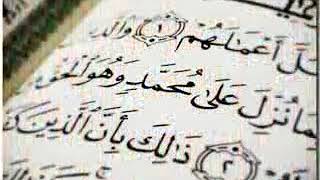 أَعْمَٰلَهُمْ ١ وَالَّذِ
بِمَا نُزِّلَ عَلَىٰ مُحَمَّدٍ وَهُوَ الْحَقُّ
٢ ذَٰلِكَ بِأَنَّ الَّذِينَ كَ